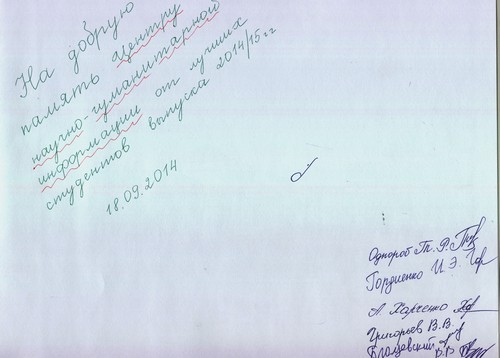 На добрую
память Центру
научно-гуманитарной
информации от лучших
студентов выпуска 2014/15 гг
18.09.2014
Гордиенко И. Э.
А. Харченко
Григорьев В. В.